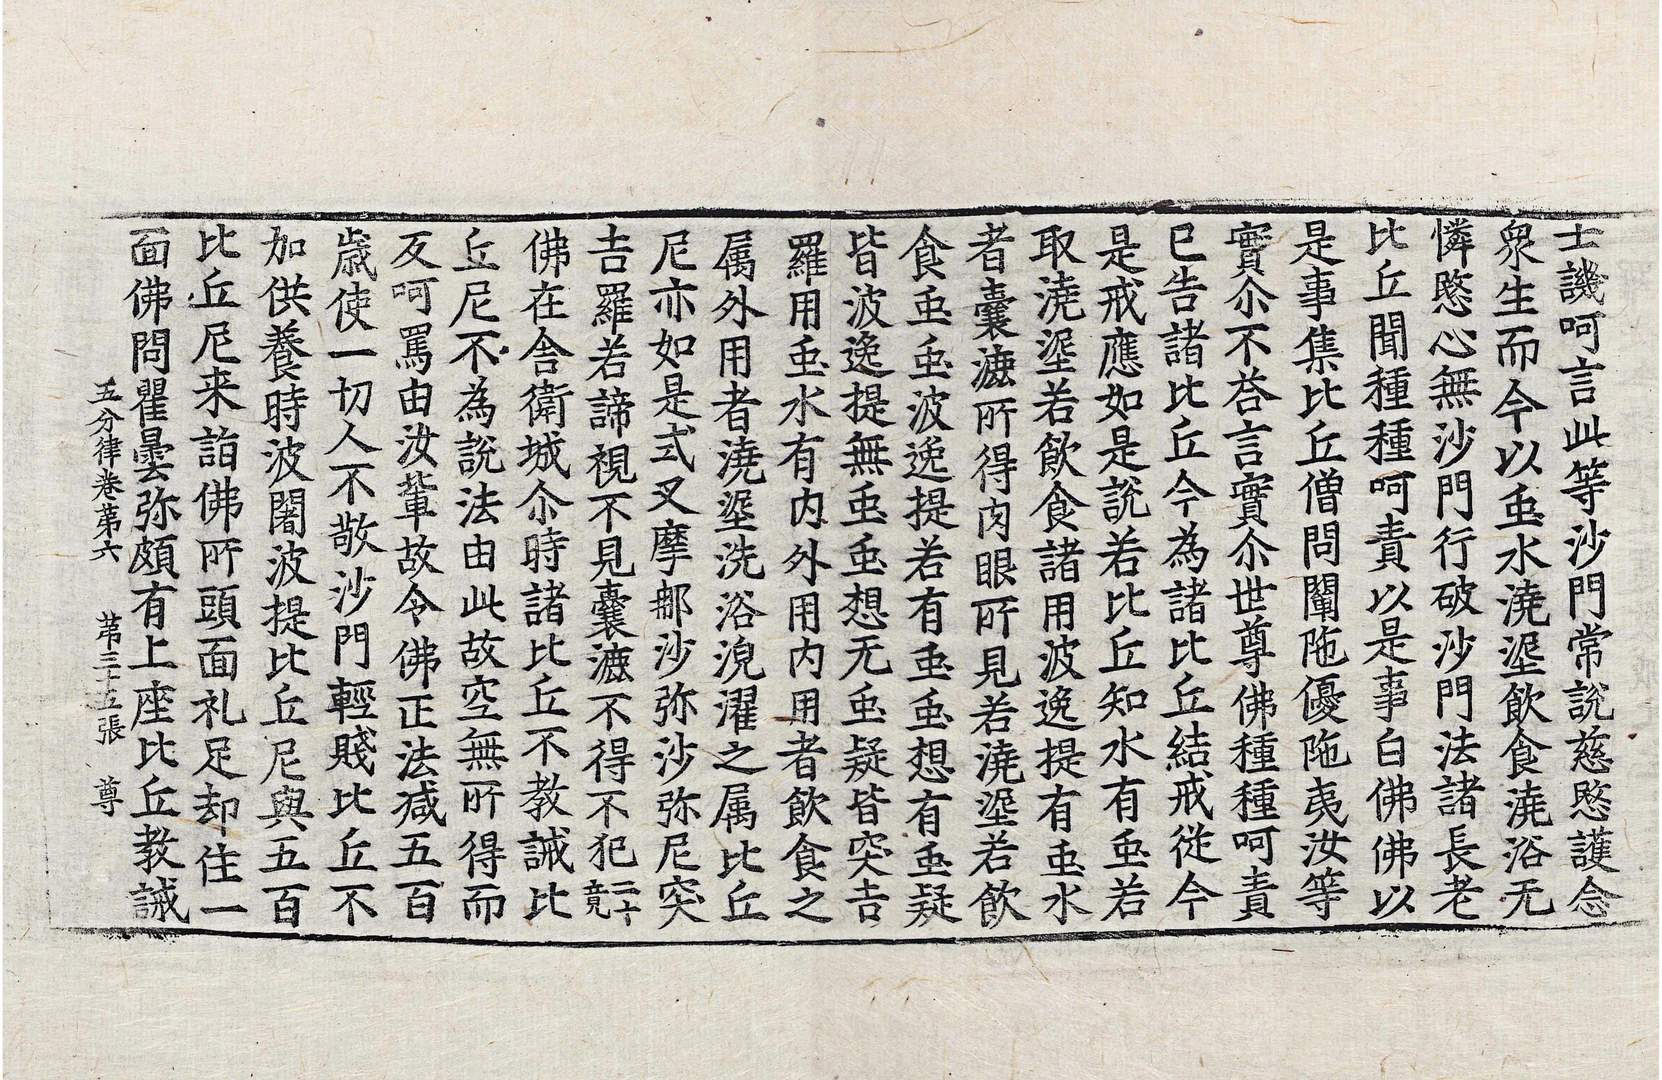 士譏呵言此等沙門常說慈愍護念
衆生而今以䖝水澆埿飲食澆浴无
憐愍心無沙門行破沙門法諸長老
比丘聞種種呵責以是事白佛佛以
是事集比丘僧問闡陁優陁夷汝等
實尒不荅言實尒世尊佛種種呵責
已告諸比丘今為諸比丘結戒從今
是戒應如是說若比丘知水有䖝若
取澆埿若飲食諸用波逸提有䖝水
者囊漉所得肉眼所見若澆埿若飲
食䖝䖝波逸提若有䖝䖝想有䖝疑
皆波逸提無䖝䖝想无䖝疑皆突吉
羅用䖝水有内外用内用者飲食之
属外用者澆埿洗浴浣濯之属比丘
尼亦如是式叉摩那沙弥沙弥尼突
吉羅若諦視不見囊漉不得不犯二十竟
佛在舍衛城尒時諸比丘不教誡比
丘尼不為說法由此故空無所得而
反呵罵由汝輩故令佛正法减五百
歳使一切人不敬沙門輕賤比丘不
加供養時波闍波提比丘尼與五百
比丘尼来詣佛所頭面礼足却住一
面佛問瞿曇弥頗有上座比丘教誡
五分律卷第六 苐三十五張 尊